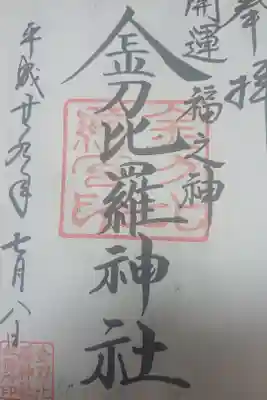 奉拝
開運福之神
金刀比羅神社
平成廿九年七月八日